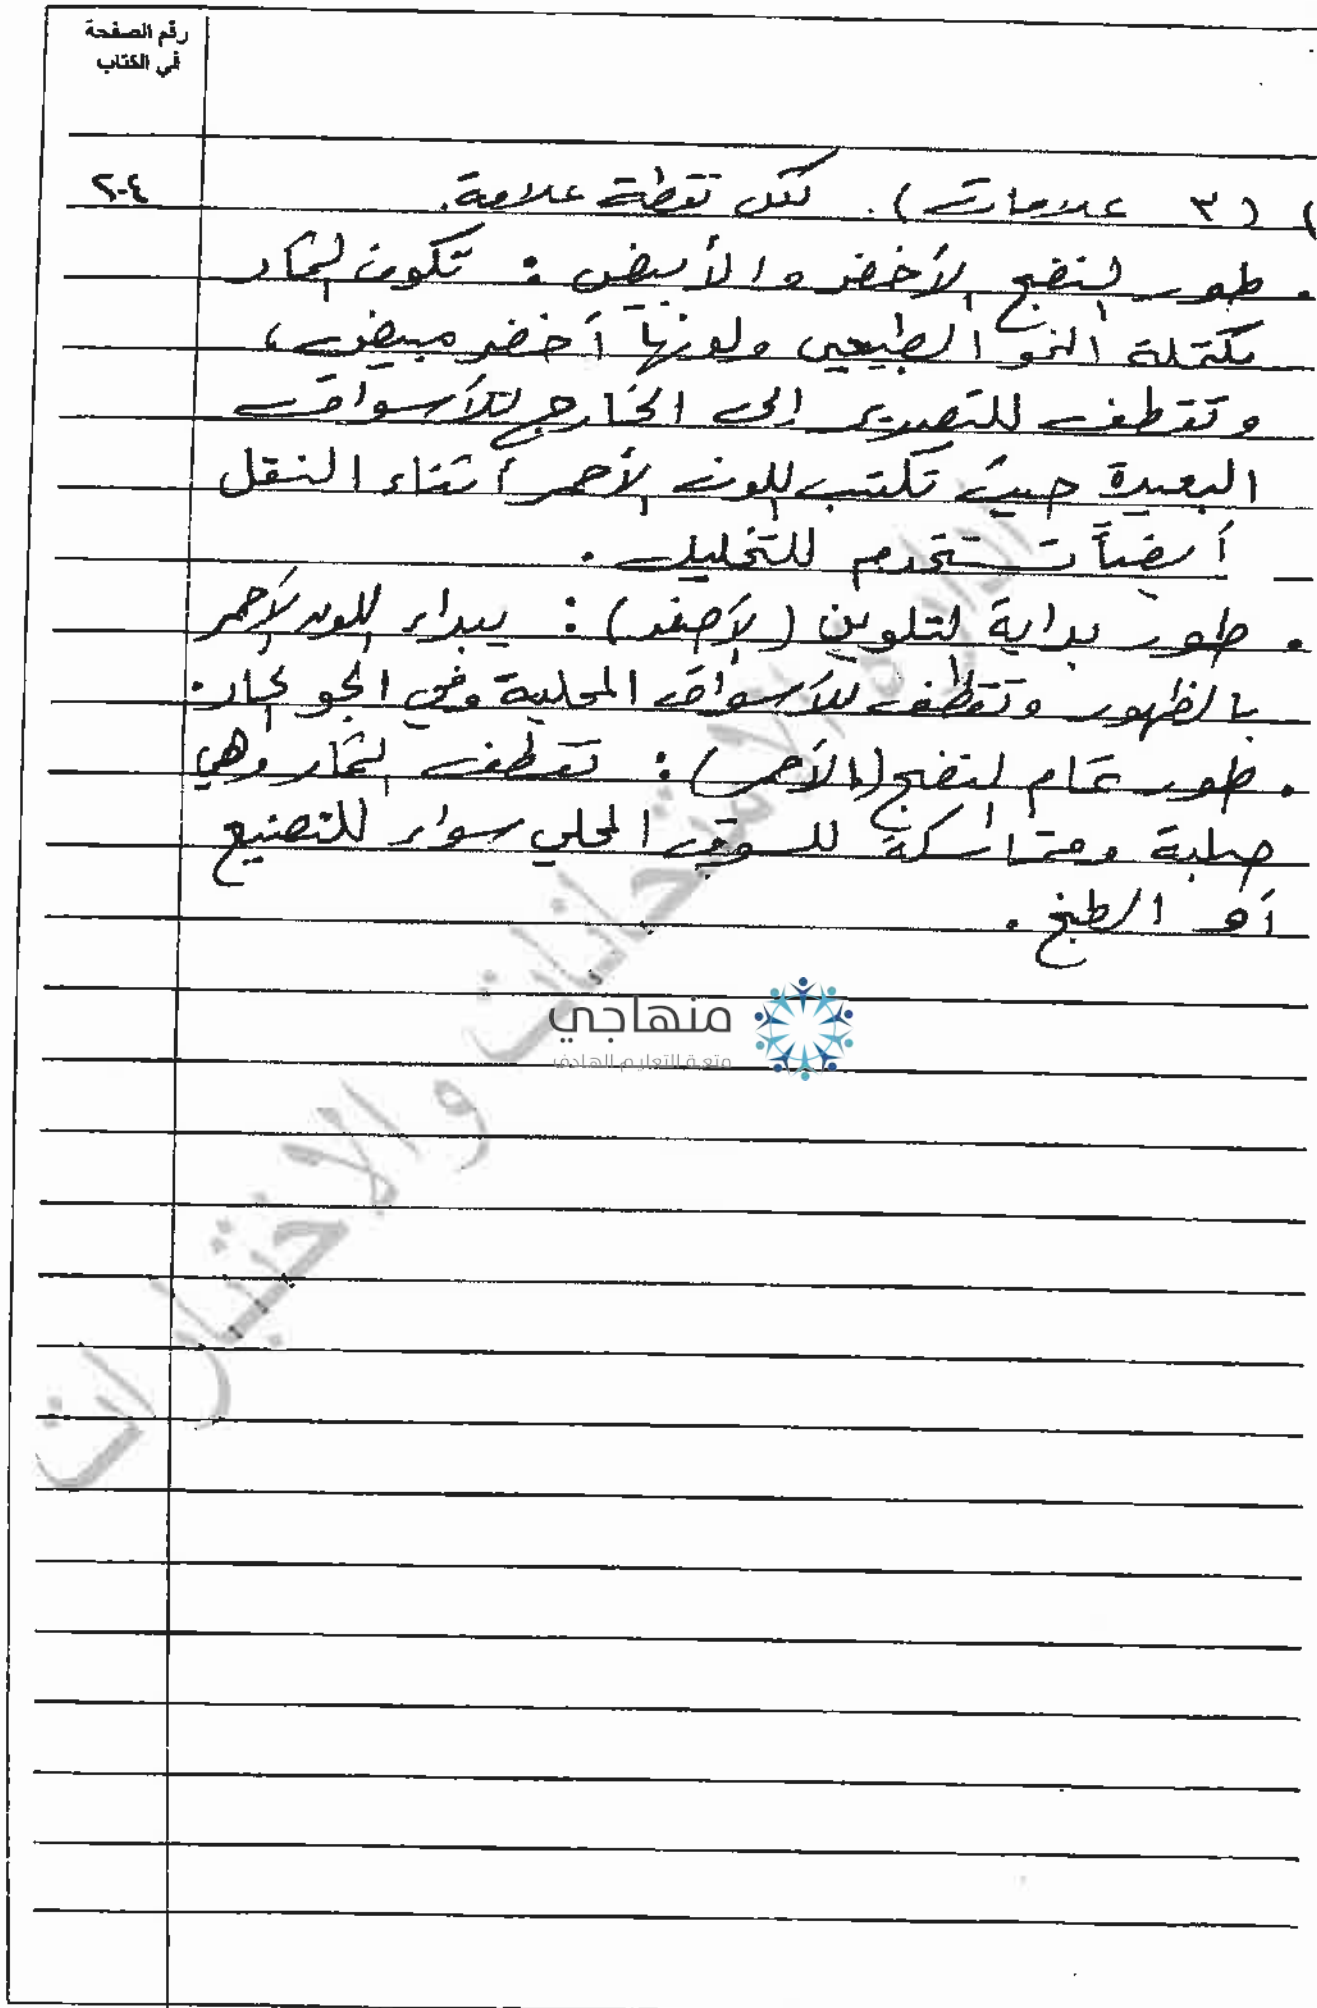 رقم الصفحة
في الكتاب
) (٣ علامات). لكل نقطة علامة. ٢٠٤
• طور النضج الأخضر والأبيض : تكون الثمار
مكتملة النمو الطبيعي ولونها أخضر مبيض،
وتقطف للتصدير إلى الخارج للأسواق
البعيدة حيث تكتسب اللون الأحمر أثناء النقل
أيضاً تستخدم للتخليل.
• طور بداية التلوين (الأصفر) : يبداء اللون الأحمر
بالظهور وتقطف للأسواق المحلية وفي الجو الحار.
• طور تمام النضج (الأحمر) : تقطف الثمار وهي
صلبة ومتماسكة للسوق المحلي سواء للتصنيع
أو الطبخ.
منهاجي
متعة التعليم الهادف
إدارة الامتحانات والاختبارات